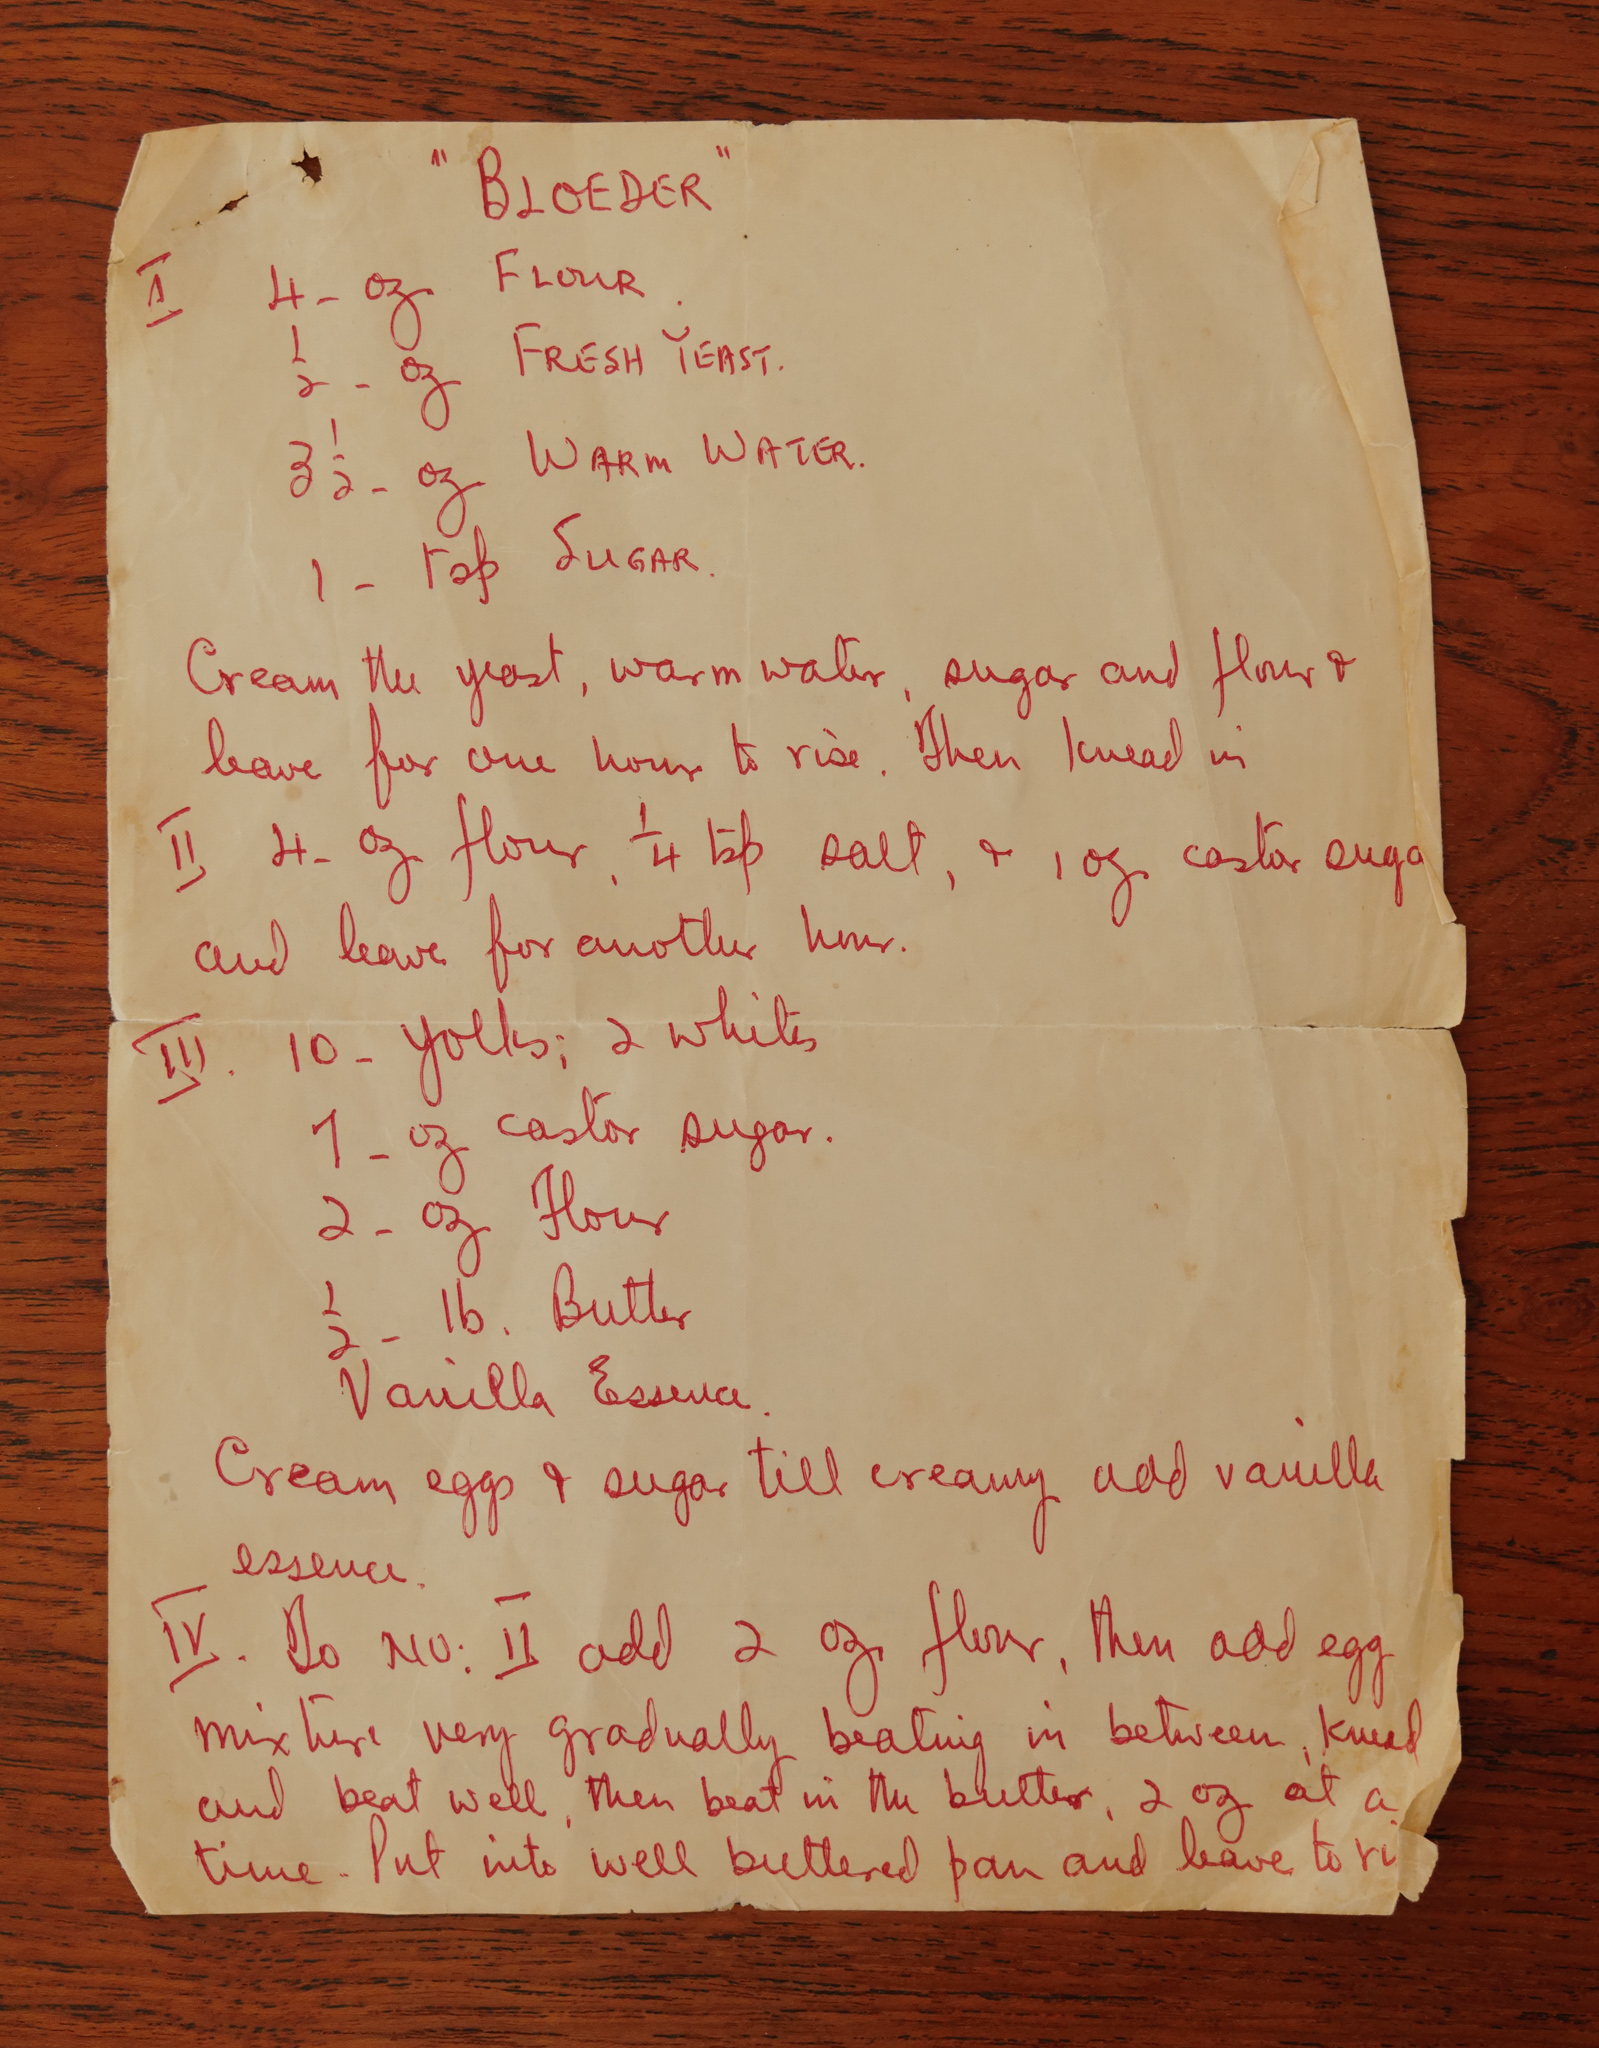 "BLOEDER"
I 4 - oz FLOUR.
1/2 - oz FRESH YEAST.
3 1/2 - oz WARM WATER.
1 - tsp SUGAR.
Cream the yeast, warm water, sugar and flour &
leave for one hour to rise. Then knead in
II 4 - oz flour, 1/4 tsp salt, & 1 oz castor suga
and leave for another hour.
III. 10 - yolks; 2 whites
7 - oz castor sugar.
2 - oz Flour
1/2 - lb. Butter
Vanilla Essence.
Cream eggs & sugar till creamy add vanilla
essence.
IV. To NO: II add 2 oz flour, then add egg
mixture very gradually beating in between, knead
and beat well, then beat in the butter, 2 oz at a
time. Put into well buttered pan and leave to ri